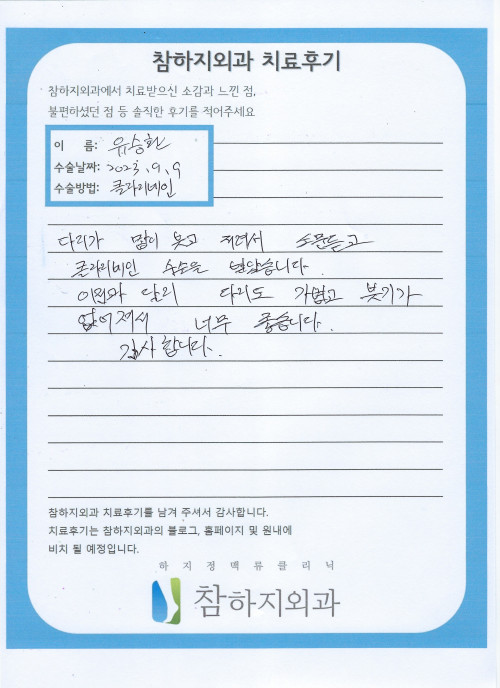 참하지외과 치료후기
참하지외과에서 치료받으신 소감과 느낀 점,
불편하셨던 점 등 솔직한 후기를 적어주세요
이 름: 유승환
수술날짜: 2023. 9. 9
수술방법: 클라리베인
다리가 많이 붓고 저려서 소문듣고
클라리베인 수술을 받았습니다.
이전과 달리 다리도 가볍고 붓기가
없어져서 너무 좋습니다.
감사합니다.
참하지외과 치료후기를 남겨 주셔서 감사합니다.
치료후기는 참하지외과의 블로그, 홈페이지 및 원내에
비치 될 예정입니다.
하지정맥류클리닉
참하지외과